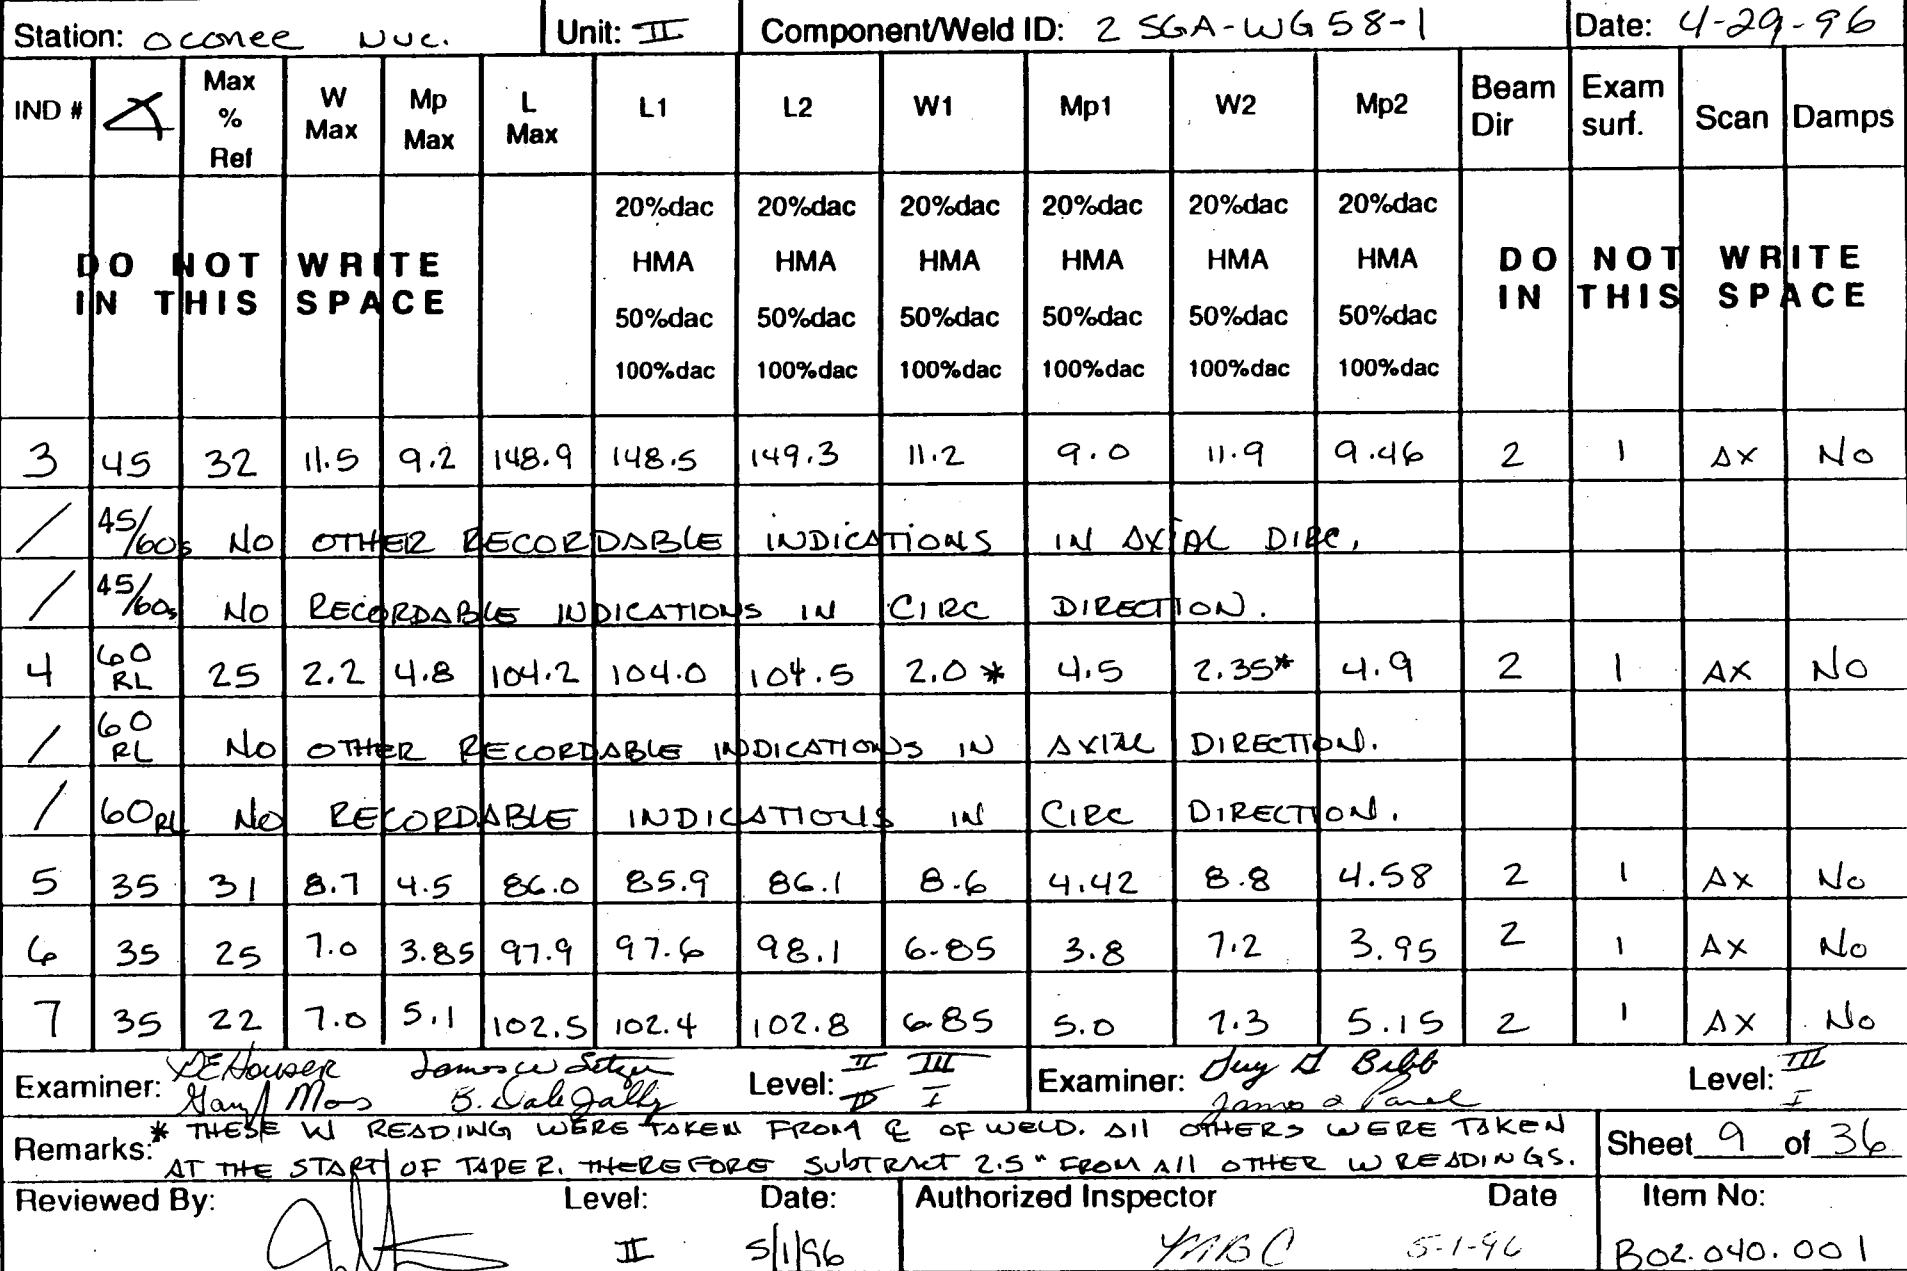 Station: Oconee Nuc. Unit: II Component/Weld ID: 2 SGA-WG58-1 Date: 4-29-96
IND # Max % Ref W Max Mp Max L Max L1 L2 W1 Mp1 W2 Mp2 Beam Dir Exam surf. Scan Damps
20%dac 20%dac 20%dac 20%dac 20%dac 20%dac
DO NOT WRITE HMA HMA HMA HMA HMA HMA DO NOT WRITE
IN THIS SPACE 50%dac 50%dac 50%dac 50%dac 50%dac 50%dac IN THIS SPACE
100%dac 100%dac 100%dac 100%dac 100%dac 100%dac
3 45 32 11.5 9.2 148.9 148.5 149.3 11.2 9.0 11.9 9.46 2 1 AX No
/ 45/60s NO OTHER RECORDABLE INDICATIONS IN AXIAL DIRC.
/ 45/60s NO RECORDABLE INDICATIONS IN CIRC DIRECTION.
4 60 RL 25 2.2 4.8 104.2 104.0 104.5 2.0* 4.5 2.35* 4.9 2 1 AX No
/ 60 RL No OTHER RECORDABLE INDICATIONS IN AXIAL DIRECTION.
/ 60RL No RECORDABLE INDICATIONS IN CIRC DIRECTION.
5 35 31 8.7 4.5 86.0 85.9 86.1 8.6 4.42 8.8 4.58 2 1 AX No
6 35 25 7.0 3.85 97.9 97.6 98.1 6.85 3.8 7.2 3.95 2 1 AX No
7 35 22 7.0 5.1 102.5 102.4 102.8 6.85 5.0 7.3 5.15 2 1 AX No
Examiner: DE Houser James W Level: II III Examiner: Guy G Bibb Level: III
Gary J Moss B. Dale II I James I
Remarks: * THESE W READING WERE TAKEN FROM ℄ OF WELD. All OTHERS WERE TAKEN
AT THE START OF TAPER. THEREFORE SUBTRACT 2.5" FROM All OTHER W READINGS.
Sheet 9 of 36
Reviewed By: Level: Date: Authorized Inspector Date Item No:
II 5/1/96 5-1-96 B02.040.001